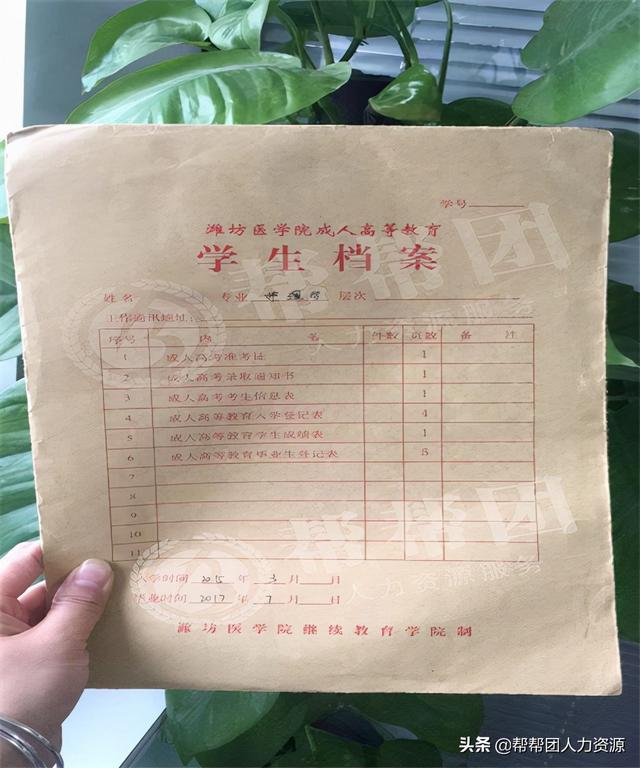 学号
潍坊医学院成人高等教育
学生档案
姓名 专业 护理学 层次
工作通讯地址:
序号 内 名 件数 页数 备 注
1 成人高考准考证 1
2 成人高考录取通知书 1
3 成人高考考生信息表 1
4 成人高等教育入学登记表 4
5 成人高等教育学生成绩表 1
6 成人高等教育毕业生登记表 8
7
8
9
10
11
入学时间 2015 年 3 月 日
毕业时间 2017 年 7 月 日
潍坊医学院继续教育学院制
帮帮团
人力资源服务
帮帮团
人力资源服务
头条 @帮帮团人力资源